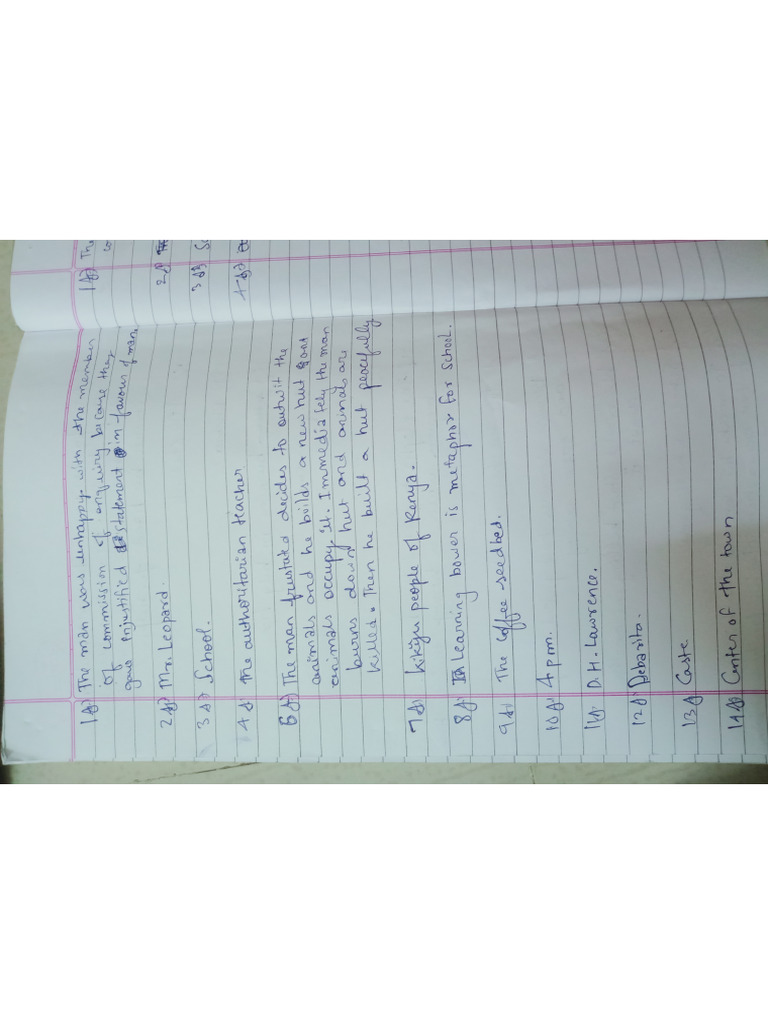 1A) The man was unhappy with the member
of commission of enquiry because they
gave injustified statement in favours of man.
2A) Mr. Leopard.
3A) School.
4A) The authoritarian teacher
6A) The man frustated decides to outwit the
animals and he builds a new hut
animals occupy it. Immediately the man
burns down hut and animals are
killed. Then he built a hut peacefully
7A) Kikiyu people of Kenya.
8A) Learning bower is metaphor for school.
9A) The coffee seedbed.
10A) 4 pm.
11A) D.H. Lawrence.
12A) Debarita.
13A) Caste
14A) Center of the town
1A) The
co
2A)
3A) Sc
4A)